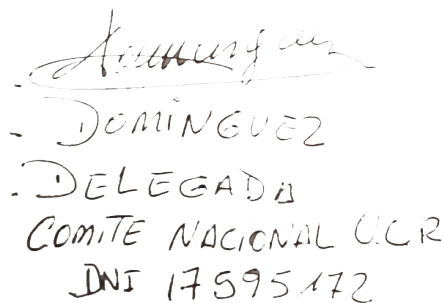 - DOMÍNGUEZ
- DELEGADA
COMITE NACIONAL U.C.R
DNI 17595172